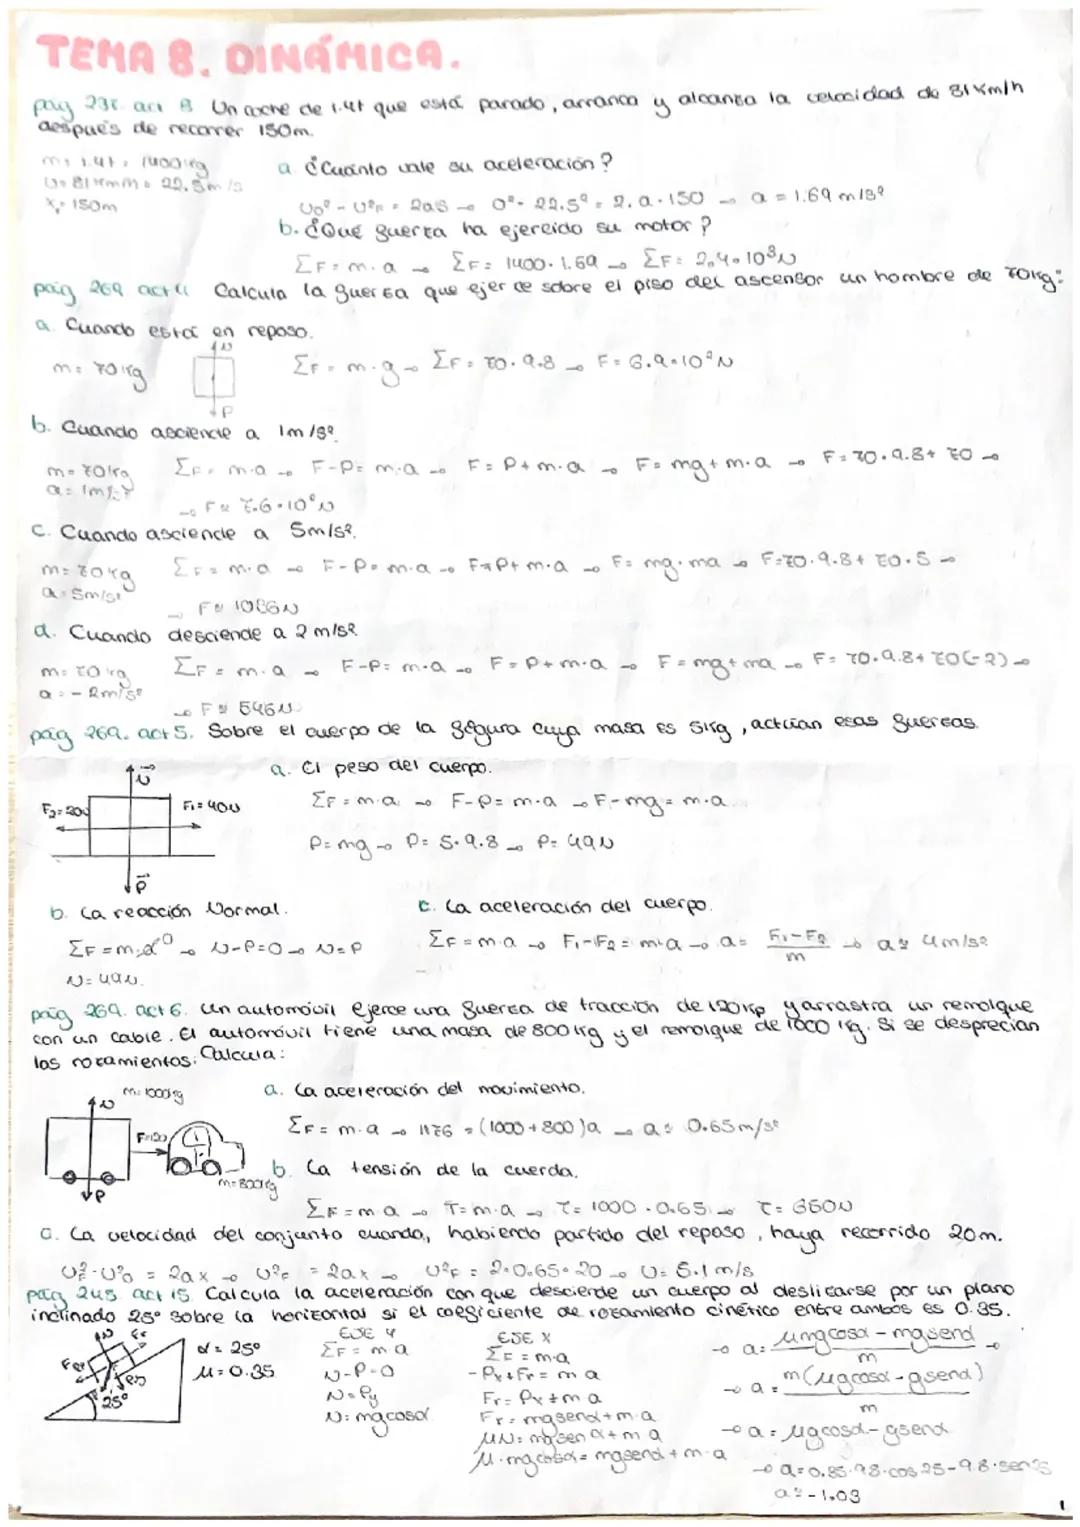 TEMA 8. DINÁMICA.
act 8 Un coche de 1.4t que está parado, arranca y alcanza la velocidad de 81 Km/h
después de recorrer 150m.
m= 1.4t = 1400kg
v= 81 km/h = 22.5m/s
x= 150m
a. ¿Cuánto vale su aceleración?
v0² - v²F = 2as → 0² - 22.5² = 2. a. 150 → a = 1.69 m/s²
b. ¿Qué fuerza ha ejercido su motor?
ΣF = m. a → ΣF = 1400. 1.69 → ΣF = 2,4·10³N
pág 269 act 4 Calcula la fuerza que ejerce sobre el piso del ascensor un hombre de 70kg:
a. Cuando está en reposo.
N
m= 70kg
ΣF = m·g → ΣF= 70·9.8 → F= 6.9·10²N
P
b. Cuando asciende a 1m/s²
m= 70kg
a= 1m/s²
ΣF= m·a → F-P= m·a → F= P+m·a → F= mg+m·a → F= 70·9.8+ 70 →
→ F≈ 7.6·10²N
c. Cuando asciende a 5m/s².
m= 70kg
a= 5m/s²
ΣF= m·a → F-P= m·a → F=P+m·a → F= mg·ma → F=70·9.8+70·5 →
→ F≈ 1036N
d. Cuando desciende a 2 m/s²
m= 70kg
a= -2m/s²
ΣF= m·a → F-P= m·a → F=P+m·a → F=mg+ma → F= 70·9.8+70(-2) →
→ F≈ 546N
pág 269. act 5. Sobre el cuerpo de la figura cuya masa es 5kg, actúan esas fuerzas.
N
F2=20N
F1= 40N
P
a. El peso del cuerpo.
ΣF = m·a → F-P= m·a → F-mg= m·a
P= mg → P= 5·9.8 → P= 49N
b. La reacción Normal.
ΣF = m·a⁰ → N-P=0 → N=P
N= 49N.
c. La aceleración del cuerpo.
ΣF = m·a → F1-F2= m·a → a= F1-F2 / m → a≈ 4m/s²
pág 269. act 6. Un automóvil ejerce una fuerza de tracción de 120kp y arrastra un remolque
con un cable. El automóvil tiene una masa de 800kg y el remolque de 1000 kg. Si se desprecian
los rozamientos. Calcula:
m= 1000kg
N
F=120
m=800kg
P
a. La aceleración del movimiento.
ΣF= m·a → 1176 = (1000+800)a → a≈ 0.65m/s²
b. La tensión de la cuerda.
ΣF= m·a → T= m·a → T= 1000·0.65 → T= 650N
c. La velocidad del conjunto cuando, habiendo partido del reposo, haya recorrido 20m.
v²F-v²0 = 2ax → v²F = 2ax → v²F = 2·0.65·20 → v= 5.1 m/s
pág 245 act 15 Calcula la aceleración con que desciende un cuerpo al deslizarse por un plano
inclinado 25° sobre la horizontal si el coeficiente de rozamiento cinético entre ambos es 0.35.
N
Fr
25°
α= 25°
μ= 0.35
EJE Y
ΣF= m·a
N-P=0
N= Py
N= mgcosα
EJE X
ΣF= m·a
-Px+Fr= m·a
Fr= Px+m·a
Fr= mgsenα+m·a
μN= mgsenα+m·a
μ·mgcosα= mgsenα+m·a
→ a= μmgcosα-mgsenα / m →
→ a= m(μgcosα-gsenα) / m
→ a= μgcosα-gsenα
→ a= 0.35·9.8·cos25-9.8·sen25
a≈ -1.03
1